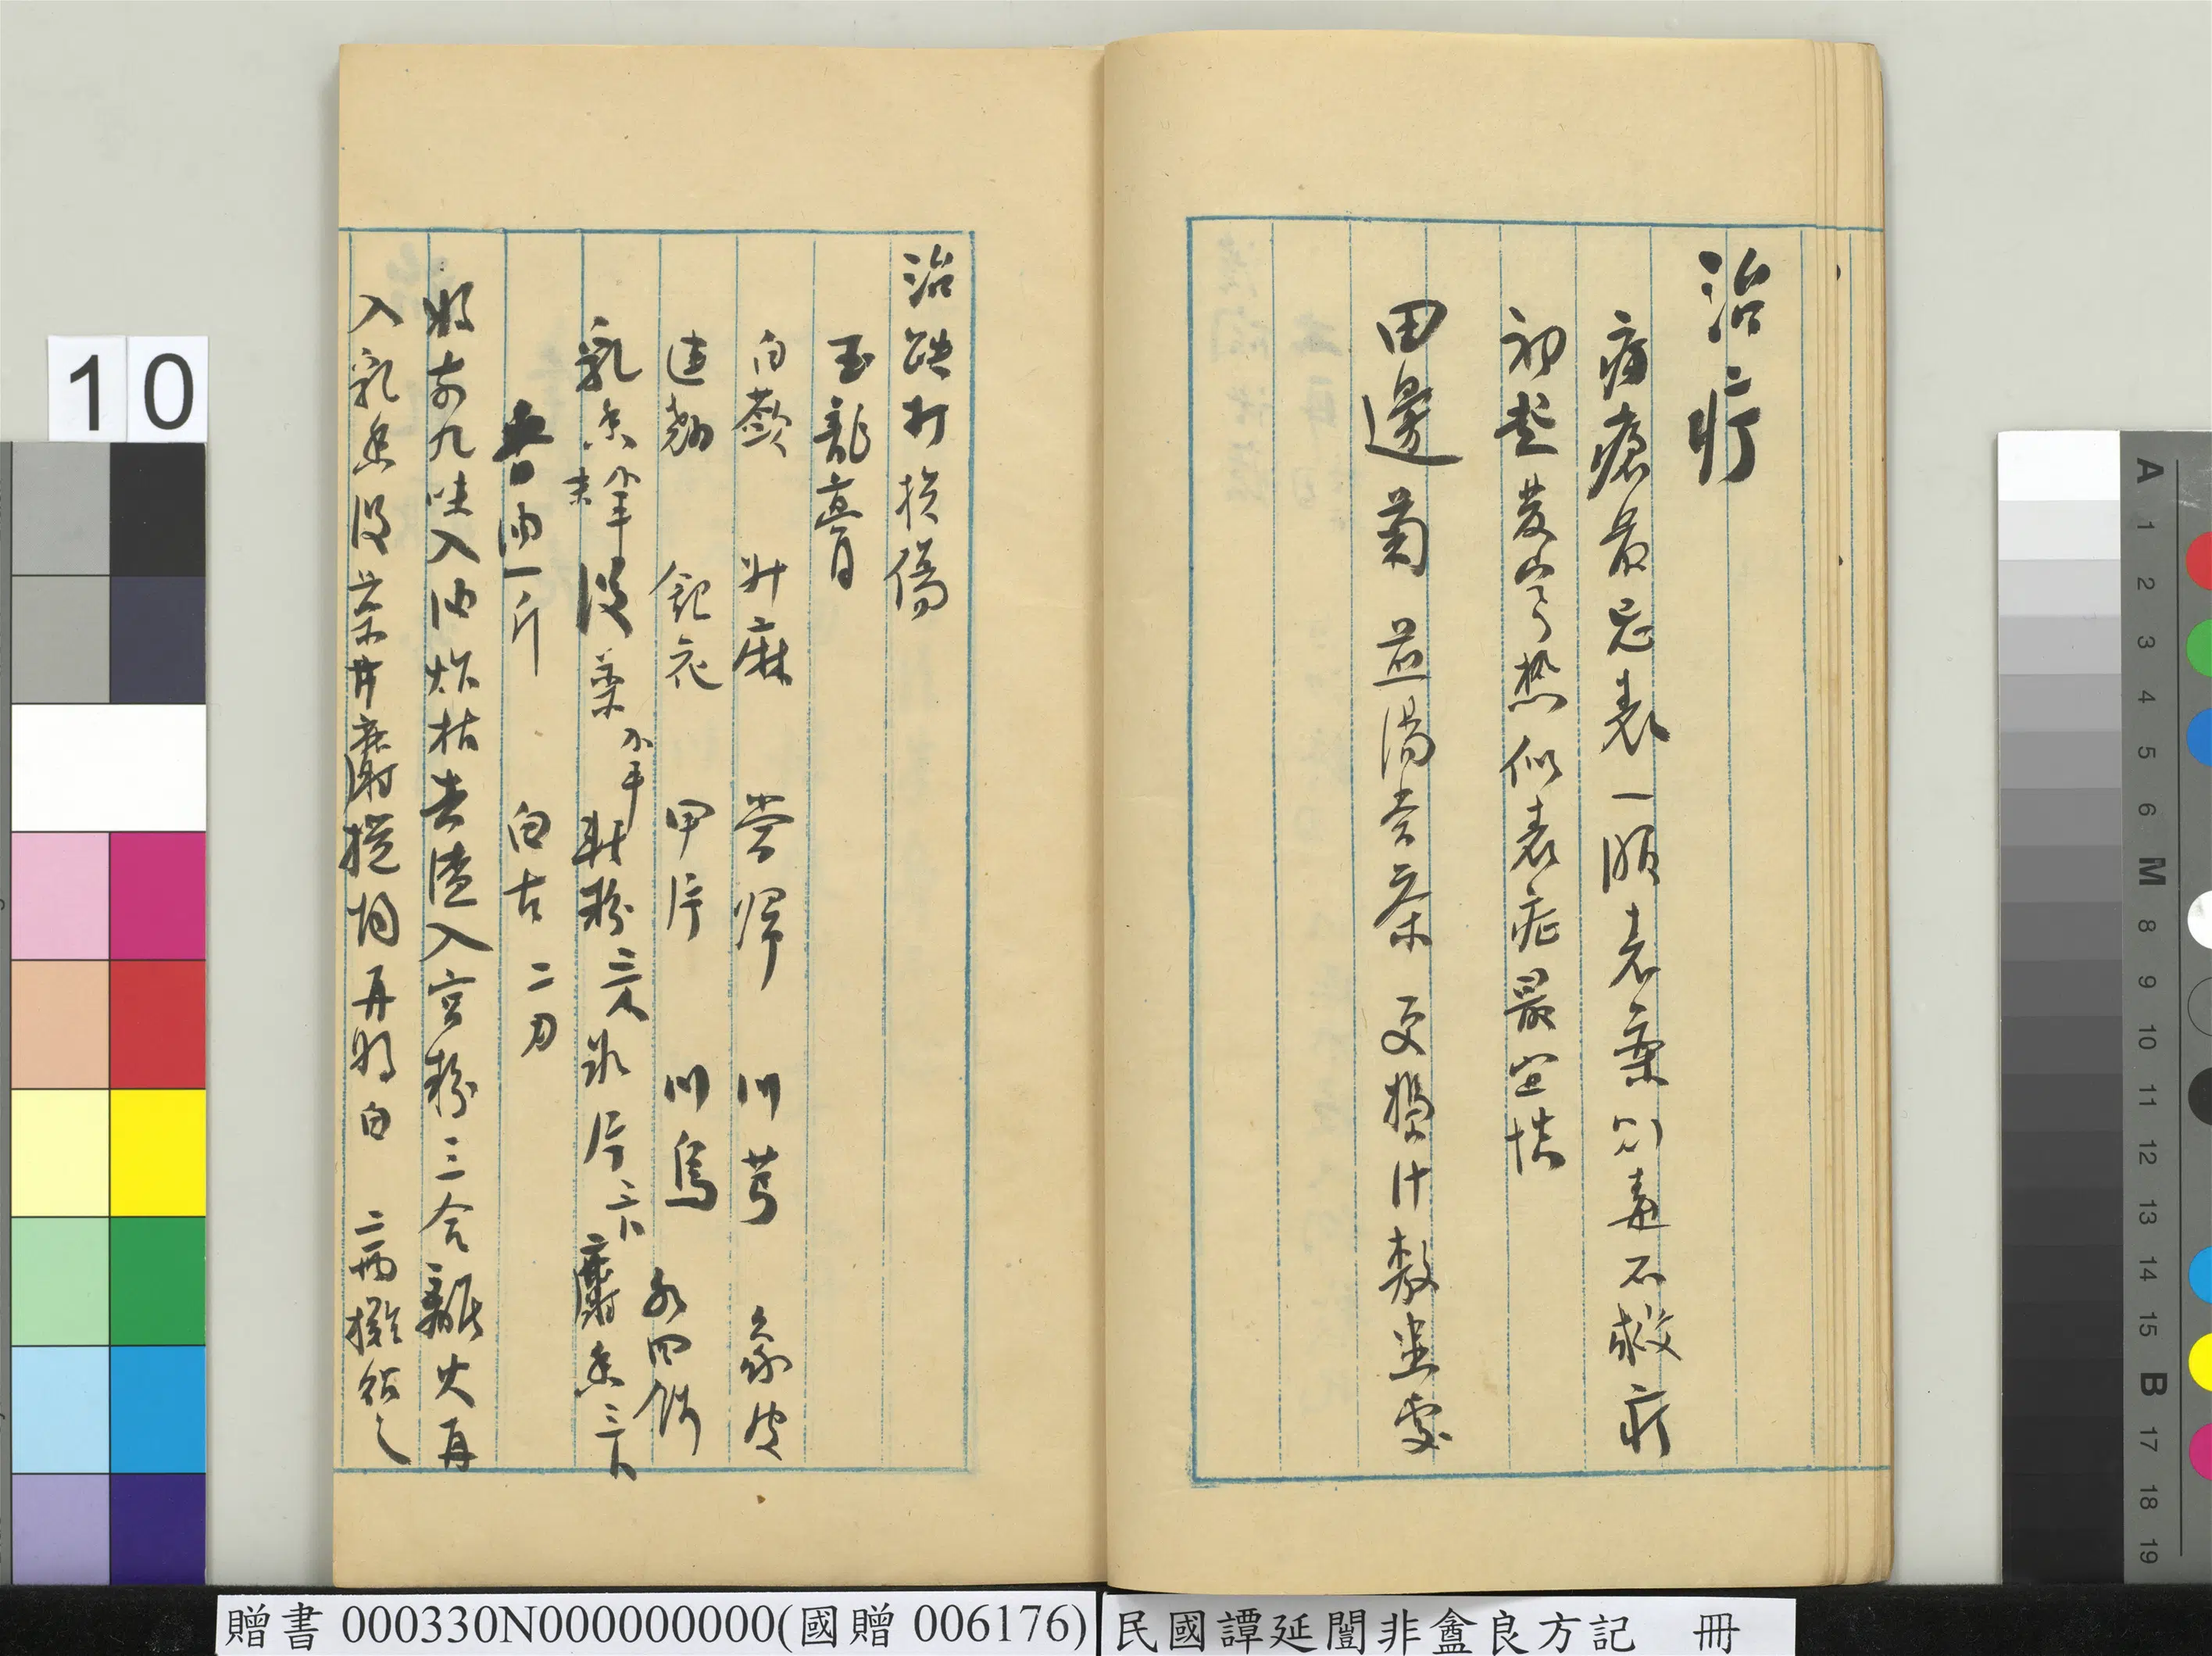 治疔
疔瘡最忌表一服表藥則毒不救疔
初起發寒熱似表症最宜慎
田邊菊 煎湯當茶 又搗汁敷患處
治跌打損傷
玉龍膏
白蘞 升麻 當歸 川芎 象皮
連翹 銀花 甲片 川烏
乳香 末 沒藥 輕粉 三錢 冰片 麝香
香油一斤 白占 二兩
將前九味入油炸枯去渣入官粉三合離火再
入乳香沒藥 麝攪勻再將白 二兩攤貼之
10
贈書 000330N000000000(國贈 006176)
民國譚延闓非盦良方記 冊
A 1 2 3 4 5 6 M 8 9 10 11 12 13 14 15 B 17 18 19